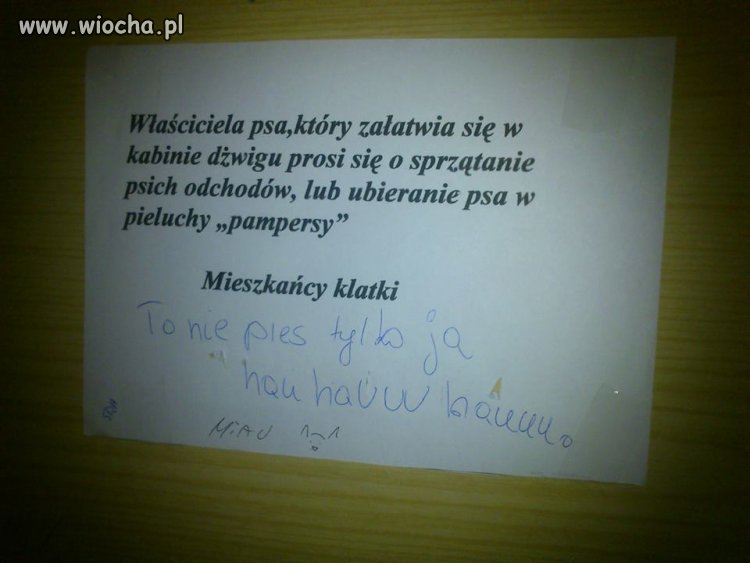 www.wiocha.pl
Właściciela psa,który załatwia się w
kabinie dżwigu prosi się o sprzątanie
psich odchodów, lub ubieranie psa w
pieluchy „pampersy”
Mieszkańcy klatki
To nie pies tylko ja
hau hauuu
MiAU